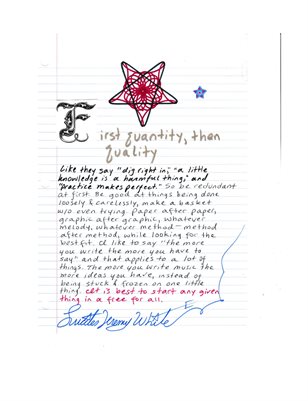 First quantity, then
quality
Like they say "dig right in," "a little
knowledge is a harmful thing," and
"practice makes perfect." So be redundant
at first. Be good at things being done
loosely & carelessly, make a basket
w/o even trying. Paper after paper,
graphic after graphic, whatever
melody, whatever method - method
after method, while looking for the
best fit. I like to say "the more
you write the more you have to
say" and that applies to a lot of
things. The more you write music the
more ideas you have, instead of
being stuck & frozen on one little
thing. It is best to start any given
thing in a free for all.
Jeremy White